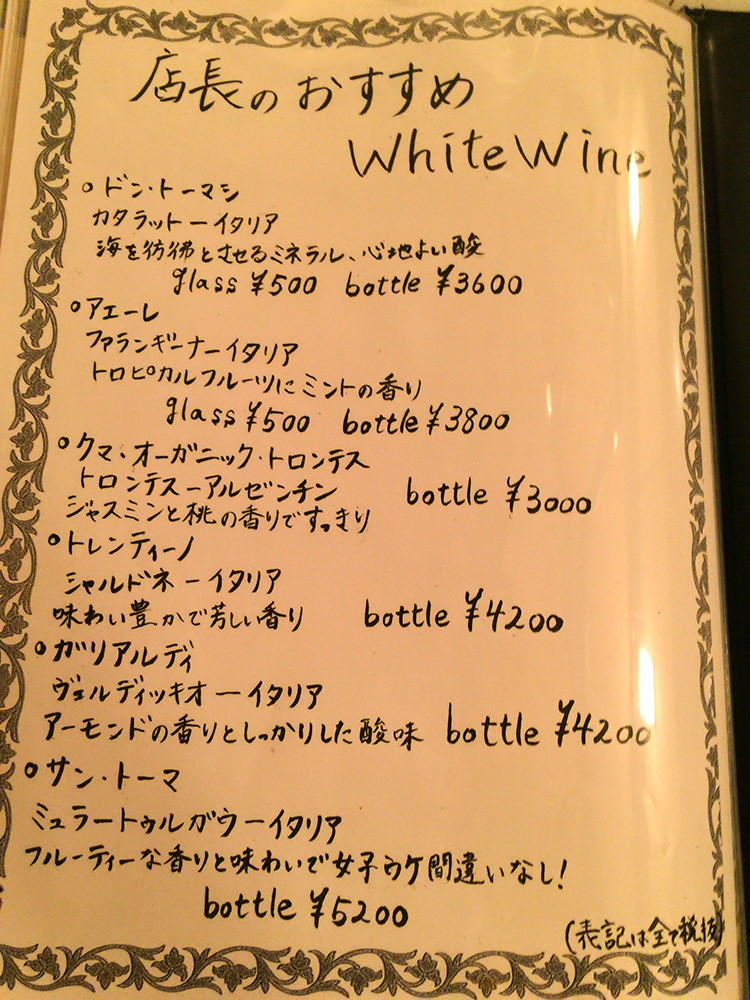 店長のおすすめ
White Wine
○ドン・トーマシ
カタラットーイタリア
海を彷彿とさせるミネラル、心地よい酸
glass ¥500 bottle ¥3600
○アエーレ
ファランギーナーイタリア
トロピカルフルーツにミントの香り
glass ¥500 bottle ¥3800
○クマ・オーガニック・トロンテス
トロンテスーアルゼンチン
bottle ¥3000
ジャスミンと桃の香りですっきり
○トレンティーノ
シャルドネーイタリア
味わい豊かで芳しい香り bottle ¥4200
○ガリアルディ
ヴェルディッキオーイタリア
アーモンドの香りとしっかりした酸味 bottle ¥4200
○サン・トーマ
ミュラートゥルガウーイタリア
フルーティーな香りと味わいで女子ウケ間違いなし!
bottle ¥5200
(表記は全て税抜)